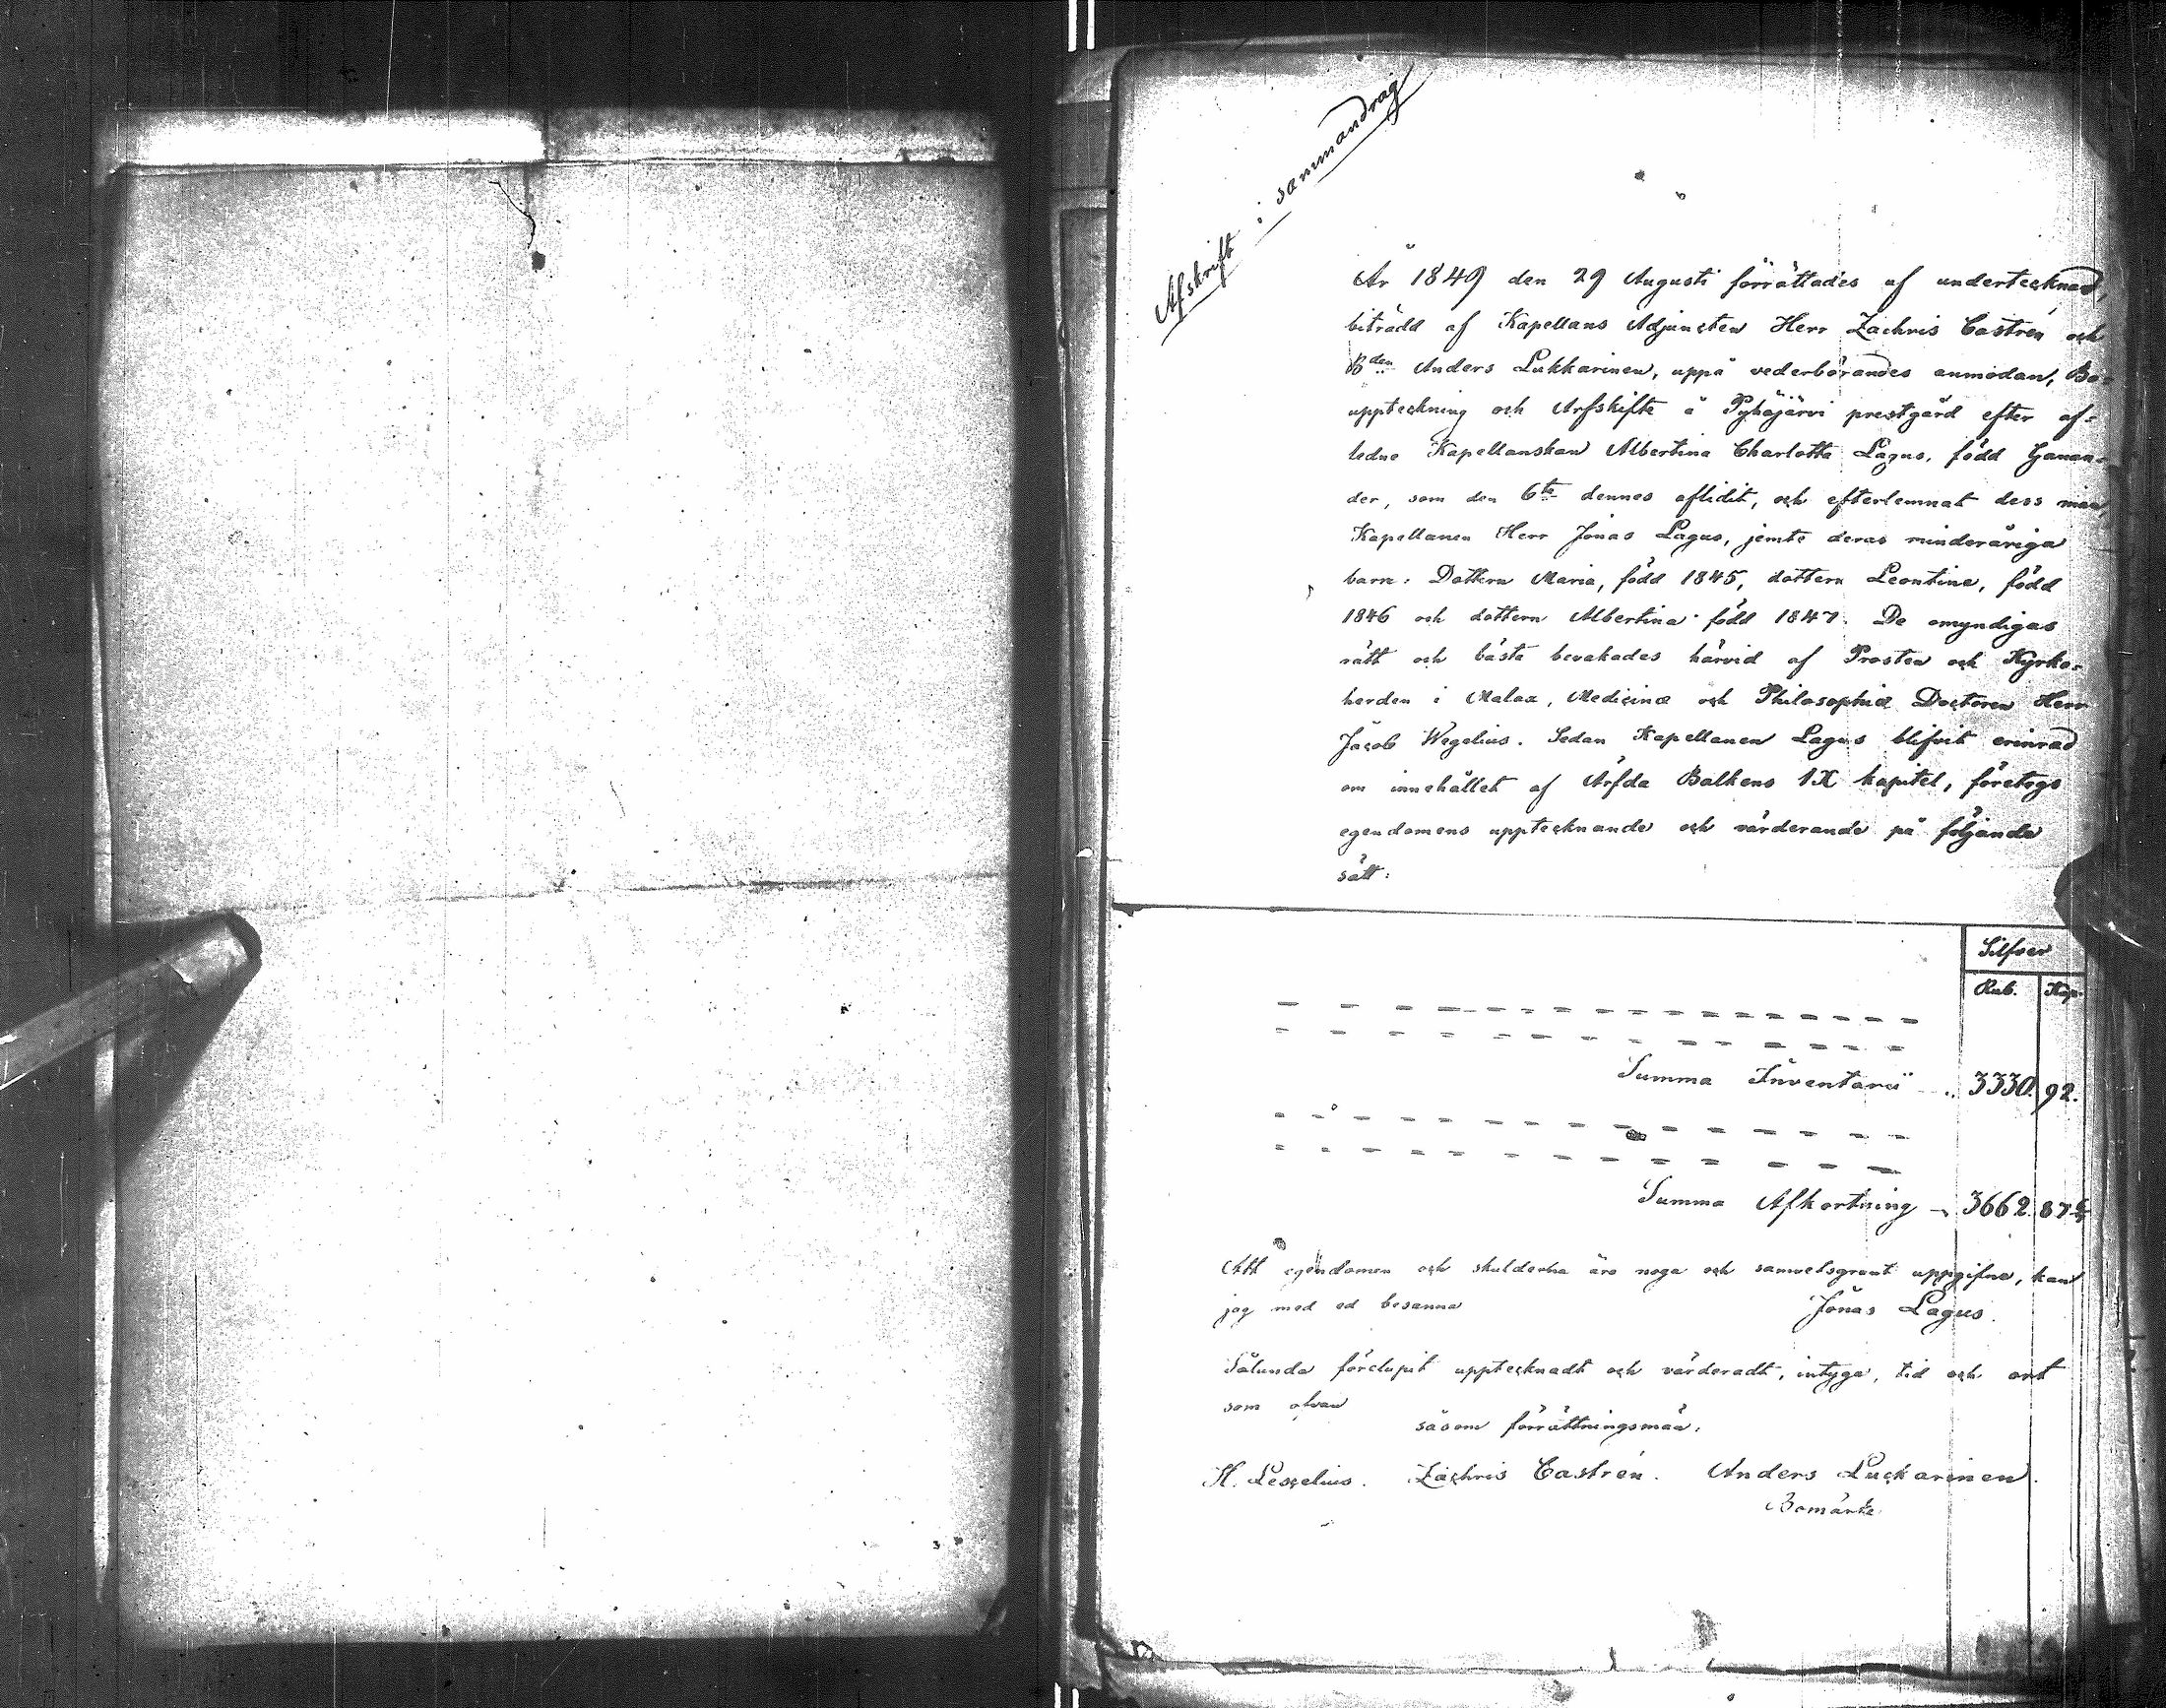 Afskrift i sammandrag
År 1849 den 29 Augusti förrättades af undertecknad,
biträdd af Kapellans Adjuncten Herr Zachris Castrén och
Bden Anders Lukkarinen, uppå vederbörandes anmodan, Bo-
uppteckning och Arfskifte å Pyhäjärvi prestgård efter af-
ledne Kapellanskan Albertina Charlotta Lagus, född Ganan-
der, som den 6te dennes aflidit, och efterlemnat dess man,
Kapellanen Herr Jonas Lagus, jemte deras minderåriga
barn: Dottern Maria, född 1845, dottern Leontine, född
1846 och dottern Albertina född 1847. De omyndigas
rätt och bästa bevakades härvid af Prosten och Kyrko-
herden i Malax, Medicinæ och Philosophiæ Doctoren Herr
Jacob Wegelius. Sedan Kapellanen Lagus blifvit erinrad
om innehållet af Ärfda Balkens IX kapitel, företogs
egendomens upptecknande och värderande på följande
sätt:
Silfver
Rub. Kop.
Summa Inventarii .. 3330. 92.
Summa Afkortning 3662. 87
Att egendomen och skulderna äro noga och samvetsgrant uppgifne, kan
jag med ed besanna Jonas Lagus.
Sålunda förelupit upptecknadt och värderadt, intyga, tid och ort
som ofvan
såsom förrättningsmän.
H. Lescelius. Zachris Castrén. Anders Luckarinen.
Bomärke